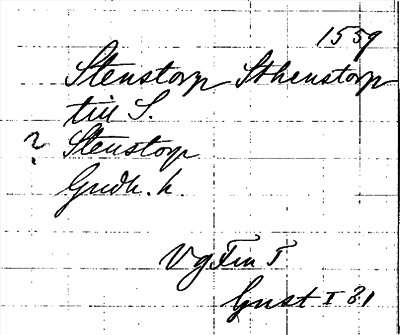 1559
Stenstorp Sthenstorp
till S.
? Stenstorp
Gudh. h.
Vg Frn T
Gust I 3:1